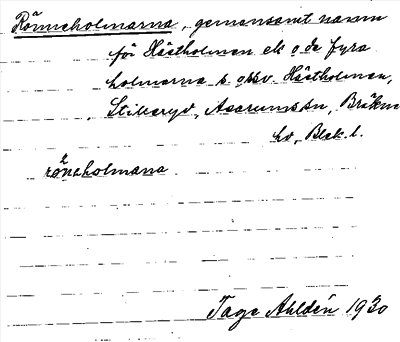 Rönneholmarna, gemensamt namn
för Hästholmen ek o de fyra
holmarna s. o. sv. Hästholmen,
Stilleryd, Asarums sn, Bräkne
hd, Blek. l.
rönəholmana
Tage Ahldén 1930